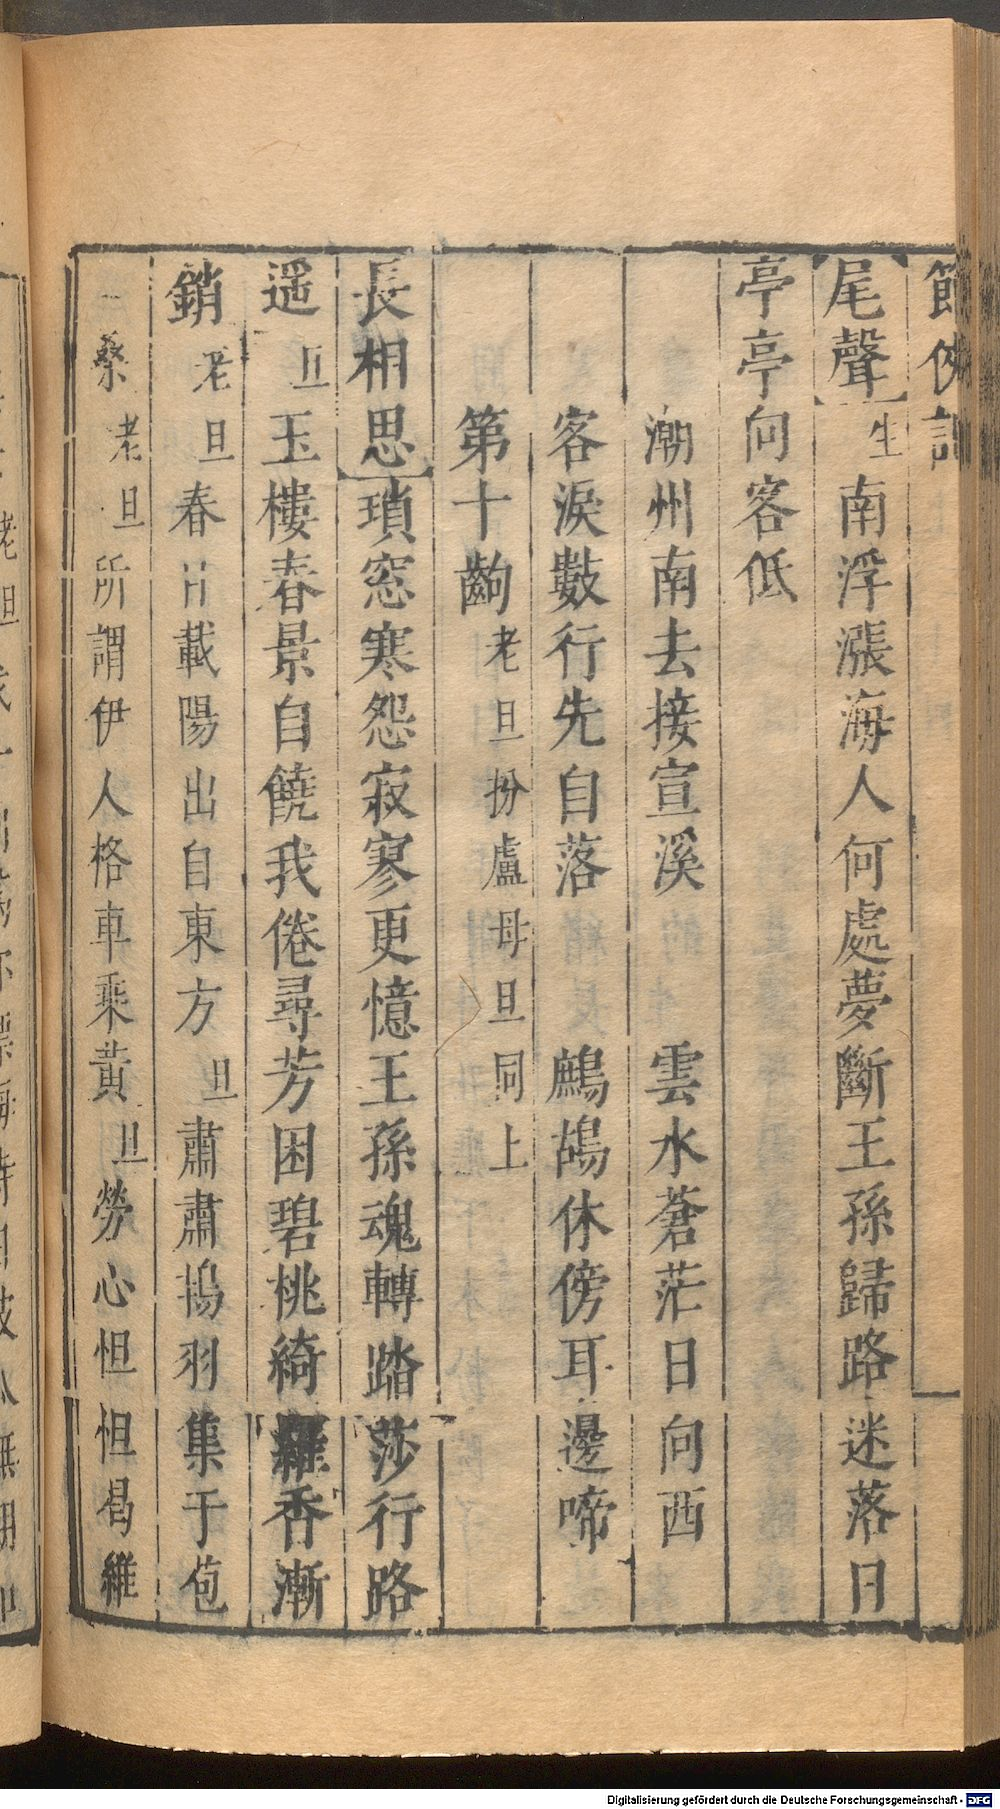 節俠記
尾聲 生 南浮漲海人何處夢斷王孫歸路迷落日
亭亭向客低
潮州南去接宣溪 雲水蒼茫日向西
客淚數行先自落 鷓鴣休傍耳邊啼
第十齣 老旦扮盧母旦同上
長相思 瑣窓寒怨寂寥更憶王孫魂轉踏莎行路
遥 旦 玉樓春景自饒我倦尋芳困碧桃綺羅香漸
銷 老旦 春日載陽出自東方 旦 肅肅鴇羽集于苞
桑 老旦 所謂伊人格車乘黃 旦 勞心怛怛曷維
Digitalisierung gefördert durch die Deutsche Forschungsgemeinschaft - DFG